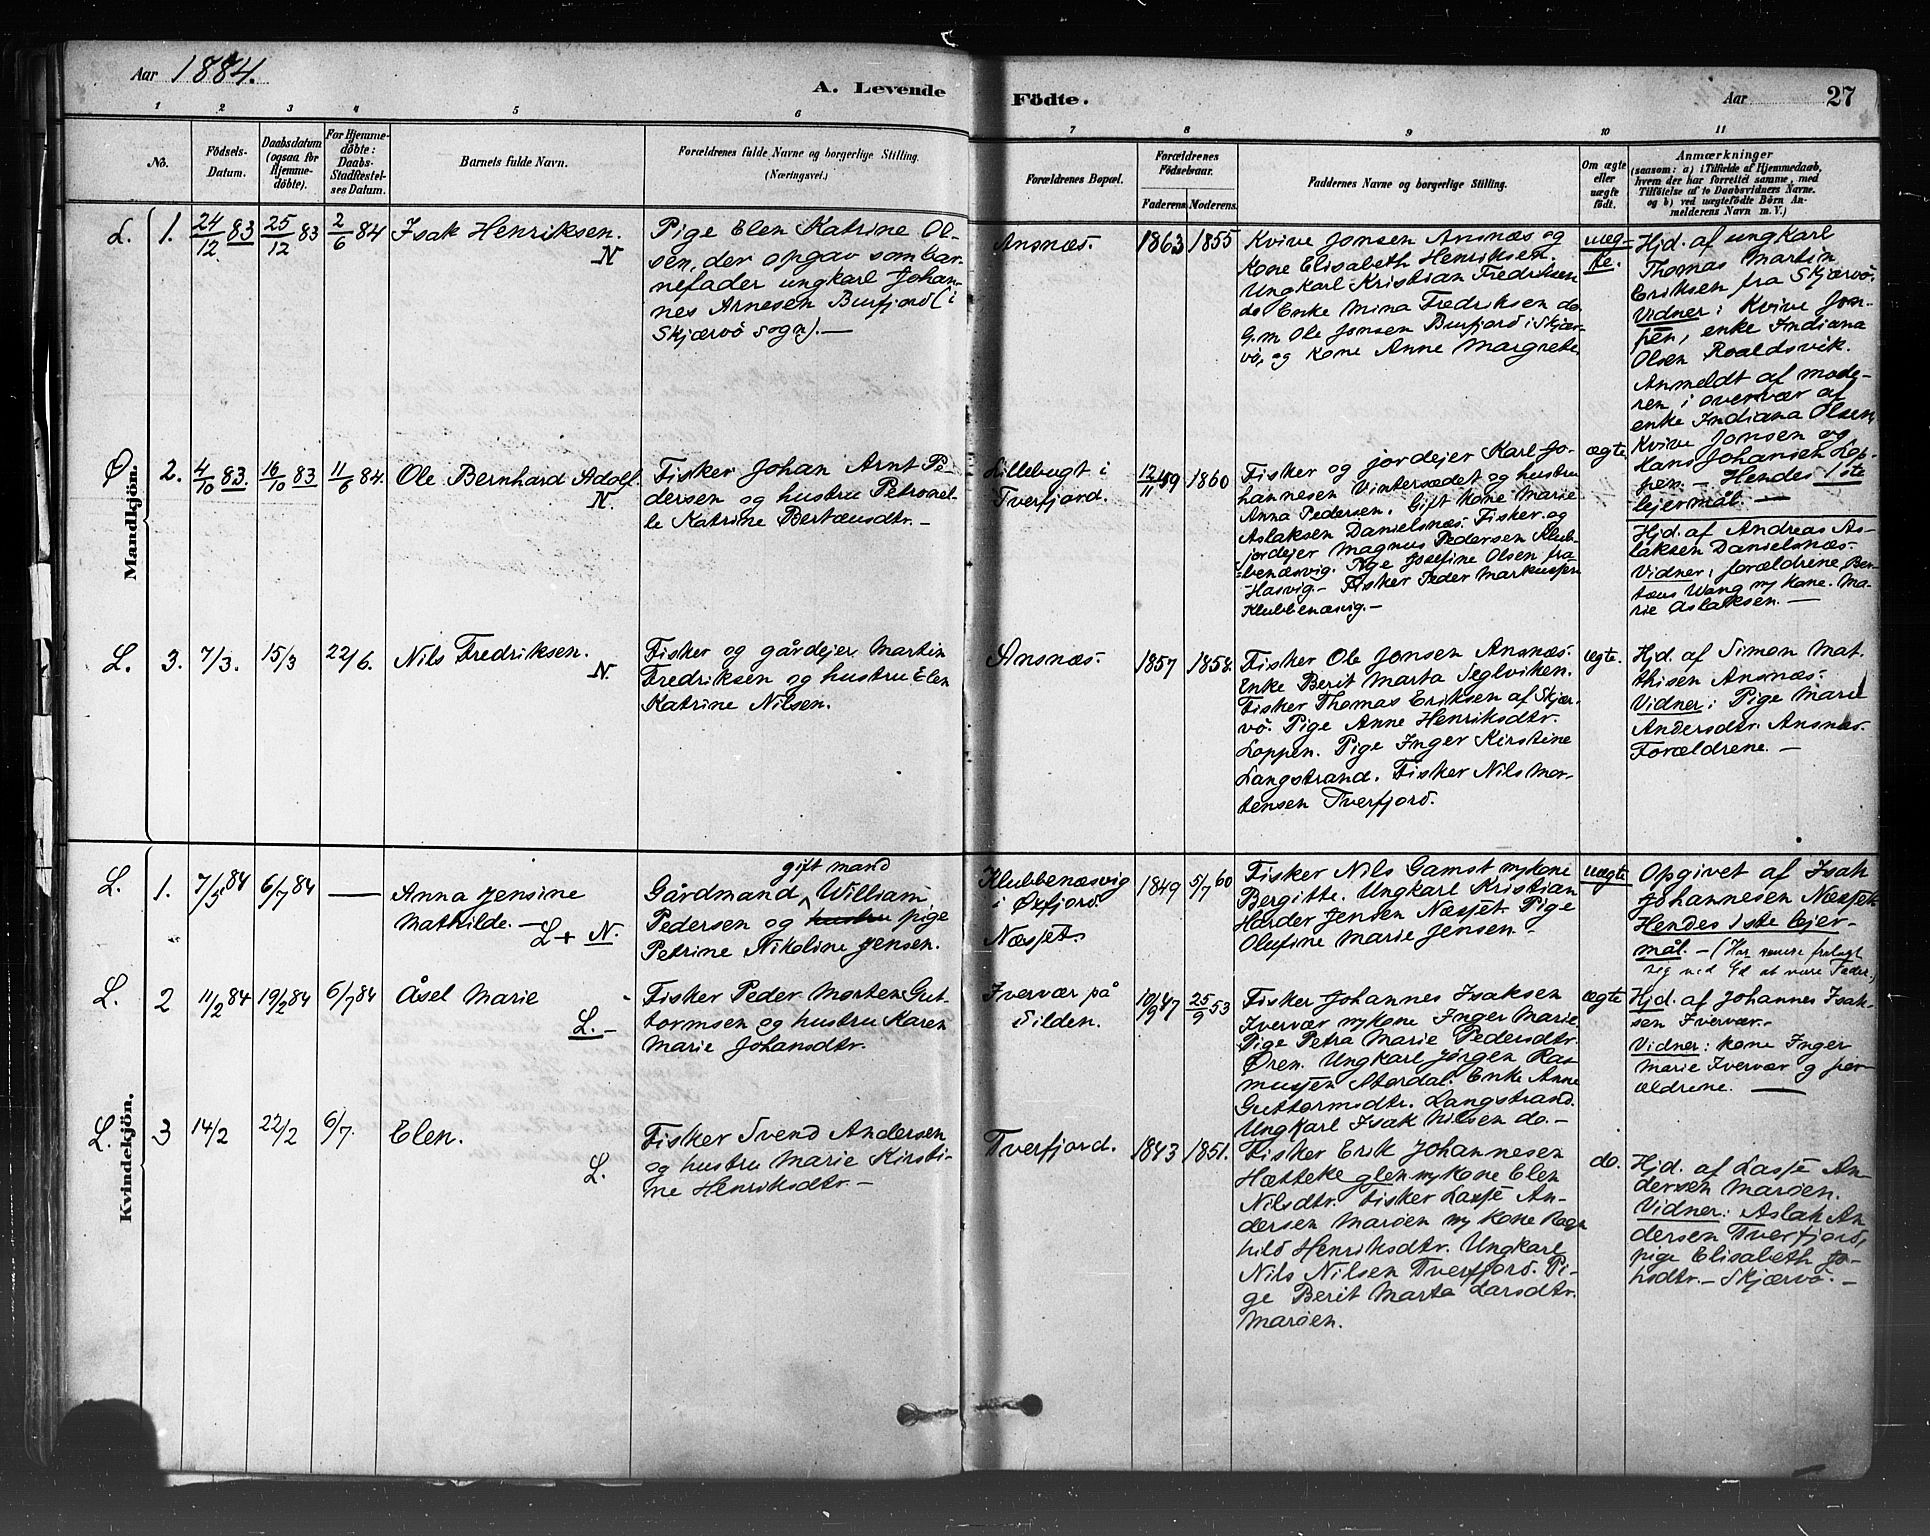 Aar 1884.
A. Levende
Födte.
Aar
27
1
2
3
4
5
6
7
8
9
10
11
No.
Födsels-
Datum.
Daabsdatum
(ogsaa for
Hjemme-
döbte).
For Hjemme-
döbte:
Daabs-
Stadfæstel-
ses Datum.
Barnets fulde Navn.
Forældrenes fulde Navne og borgerlige Stilling.
(Næringsvei.)
Forældrenes Bopæl.
Forældrenes
Födselsaar.
Faderens.
Moderens.
Faddernes Navne og borgerlige Stilling.
Om ægte
eller
uægte
födt.
Anmærkninger
(saasom: a) i Tilfælde af Hjemmedaab,
hvem der har forrettet samme, med
Tilföielse af to Daabsvidners Navne.
og b) ved uægtefödte Börn An-
melderens Navn m. V.)
Mandkjön.
L. 1. 24/12 83 25/12 83 2/6 84
Isak Henriksen.
N
Pige Elen Katrine Ol-
sen, der opgav som bar-
nefader ungkarl Johan-
nes Arnesen Burfjord (i
Skjærvö sogn). —
Ansnæs. 1863 1855
Kvive Jonsen Ansnæs og
Kone Elisabeth Henriksen.
Ungkarl Kristian Fredriksen
do Enke Mina Fredriksen do
G.m. Ole Jonsen Burfjord i Skjær-
vö, og Kone Anne Margrete
uæg-
te.
Hjd. af ungkarl
Thomas Martin
Eriksen fra Skjærvö.
Vidner: Kvive Jon-
sen, enke Indiana
Olsen Roaldsvik.
Anmeldt af mode-
ren i overvær af
enke Indiana Olsen,
Kvive Jonsen og
Hans Johansen Lop-
pen. — Hendes 1ste
lejermål. —
Ø 2. 4/10 83 16/10 83 11/6 84.
Ole Bernhard Adolf
N.
Fisker Johan Arnt Pe-
dersen og hustru Petronel-
le Katrine Bertæusdtr. —
Lillebugt i
Tverfjord.
12/11 59 1860
Fisker og jordejer Karl Jo-
hannesen Vintersædet og hustru
Anna Pedersen. Gift Kone Marie
Aslaksen Danielsnæs. Fisker og
jordejer Magnus Pedersen Klub-
benæsvig. Pige Josefine Olsen fra
Hasvig. — Fisker Peder Markussen
Klubbenæsvig. —
ægte
Hjd. af Andreas As-
laksen Danielsnæs.
Vidner: forældrene, Ber-
tæus Wang m/ Kone. Ma-
rie Aslaksen. —
L. 3. 7/3. 15/3 22/6.
Nils Fredriksen.
N.
Fisker og gårdejer Martin
Fredriksen og hustru Elen
Katrine Nilsen.
Ansnæs. 1857 1858.
Fisker Ole Jonsen Ansnæs.
Enke Berit Marta Seglviken.
Fisker Thomas Eriksen af Skjær-
vö. Pige Anne Henriksdtr.
Loppen. Pige Inger Kirstine
Langstrand. Fisker Nils Mor-
tensen Tverfjord.
ægte.
Hjd. af Simon Mat-
thisen Ansnæs.
Vidner: Pige Marie
Andersdtr. Ansnæs.
Forældrene. —
Kvindekjön.
L. 1. 7/5 84 6/7 84 —
Anna Jensine
Mathilde. —
L + N.
gift mand
Gårdmand William
Pedersen og hustru pige
Petrine Nikoline Jensen.
Klubbenæsvig
i Øxfjord
Næsset.
1849 5/7 60
Fisker Nils Gamst m/kone
Bergitte. Ungkarl Kristian
Harder Jensen Næsset. Pige
Olufine Marie Jensen
uægte
Opgivet af Isak
Johannesen Næsset.
Hendes 1ste lejer-
mål. — (Har senere fralagt
sig ved Ed at være Fader.)
L. 2 11/2 84 19/2 84 6/7 84
Åsel Marie
L. —
Fisker Peder Morten Gut-
tormsen og hustru Karen
Marie Johansdtr.
Ivervær på
Silden.
10/9 47 25/9 53
Fisker Johannes Isaksen
Ivervær m/kone Inger Marie.
Pige Petra Marie Pedersdtr.
Øren. Ungkarl Jørgen Ras-
mussen Aterdal. Enke Anne
Guttormsdtr. Langstrand.
Ungkarl Isak Nilsen do. —
ægte
Hjd. af Johannes Isak-
sen Ivervær. —
Vidner: kone Inger
Marie Ivervær og for-
ældrene. —
L. 3 14/2 22/2 6/7.
Elen.
L.
Fisker Svend Andersen
og hustru Marie Kirsti-
ne Henriksdtr —
Tverfjord. 1843 1851.
Fisker Erik Johannesen
Hætteke glen m/Kone Elen
Nilsdtr. Fisker Lasse An-
dersen Maröen m/ Kone Ragn
hild Henriksdtr. Ungkarl
Nils Nilsen Tverfjord. Pi-
ge Berit Marta Larsdtr.
Maröen.
do.
Hjd. af Lasse An-
dersen Maröen.
Vidner: Aslak An
dersen Tverfjord,
pige Elisabeth Jo-
hsdtr. — Skjærvö. —